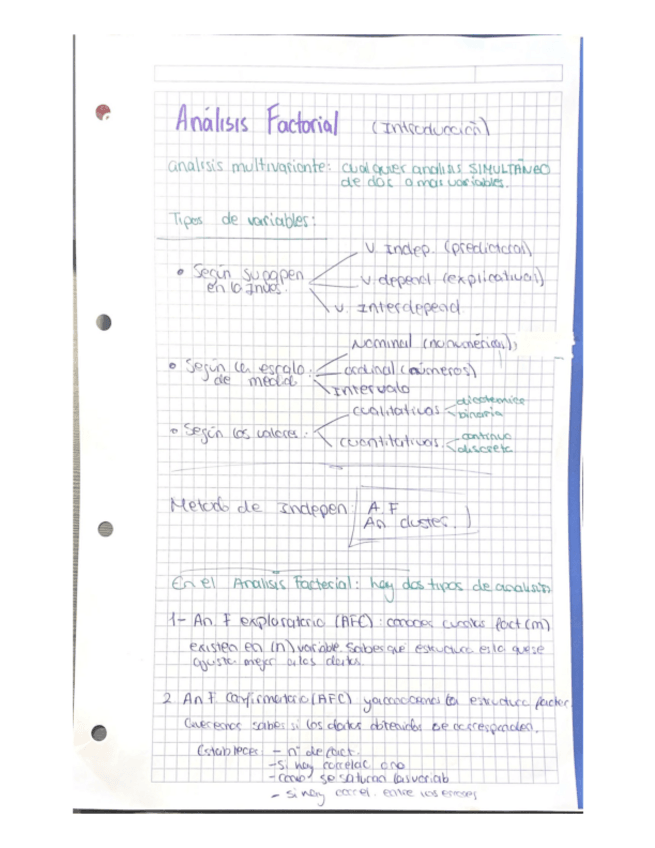 Análisis Factorial (Introducción)
analisis multivariante: cualquier analisis SIMULTÁNEO
de dos o mas variables.
Tipos de variables:
V. Indep. (predictoras)
• Según su papen
en la Inves.
v. depend (explicativas)
v. Interdepend
Nominal (no numéricas);
• Según la escala
de medida
ordinal (números)
Intervalo
cualitativos
dicotomice
binaria
• Según los valores:
cuantitativos.
continuo
discreta
Metodo de Indepen:
A.F
An cluster.
En el Analisis Factorial: hay dos tipos de analisis
1- An. F exploratorio (AFC): conoces cuantos fact (m)
existen en (n) variable. Sabes que estructura es la que se
ajusta mejor a los datos.
2 An F. Confirmatorio (AFC) ya conocemos la estructura factor.
Queremos saber si los datos obtenidos se corresponden.
Establecer: - nº de fact.
- Si hay correlac o no
- como se saturan las variab
- si hay correl. entre los errores